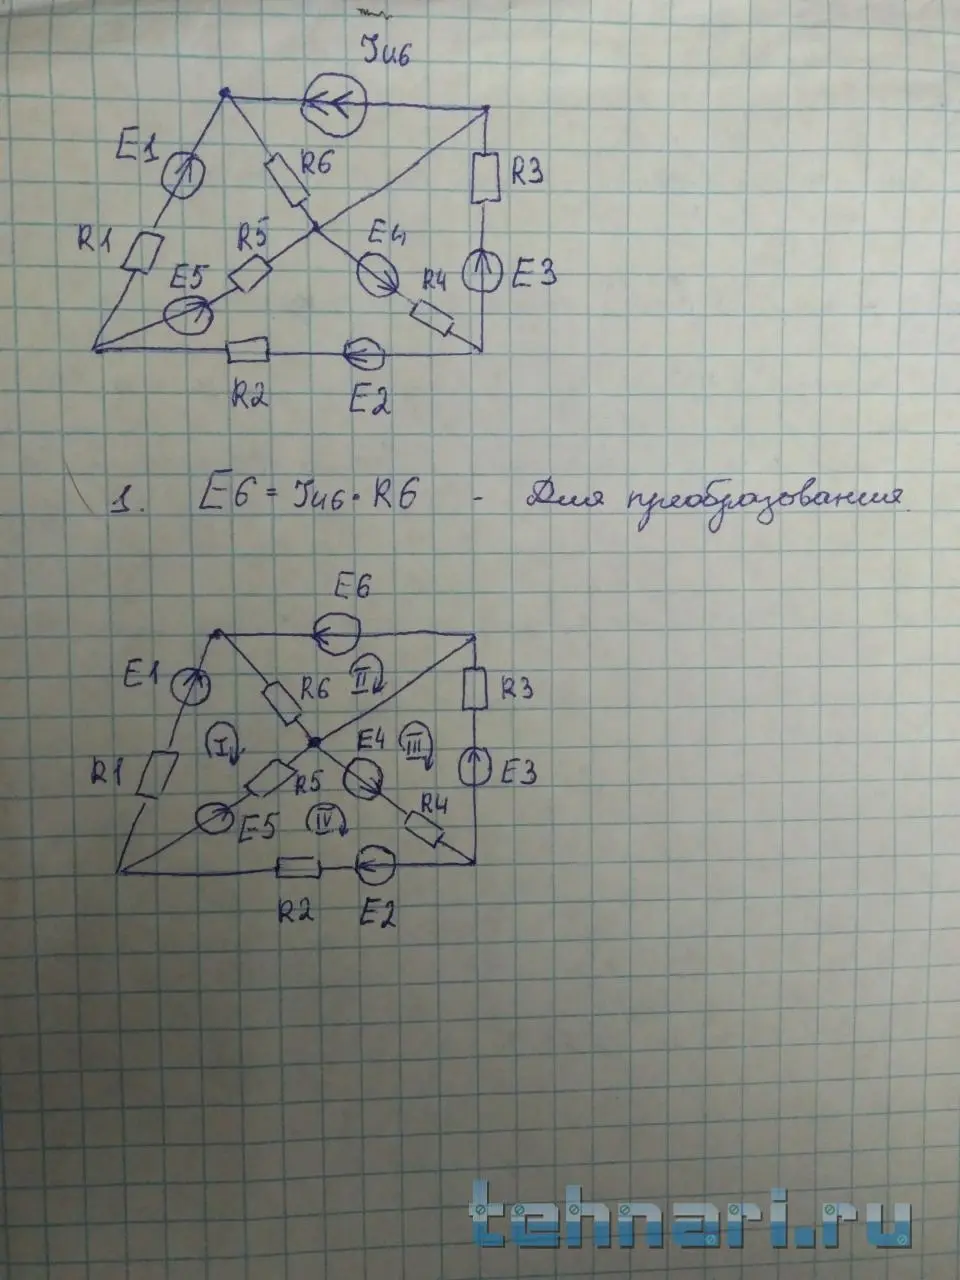 Jи6
E1
R6
R3
R1
R5
E4
E5
R4
E3
R2
E2
1. E6 = Jи6 · R6 - Для преобразования
E6
E1
R6
II
R3
I
E4
III
R1
R5
E3
R4
E5
IV
R2
E2
tehnari.ru